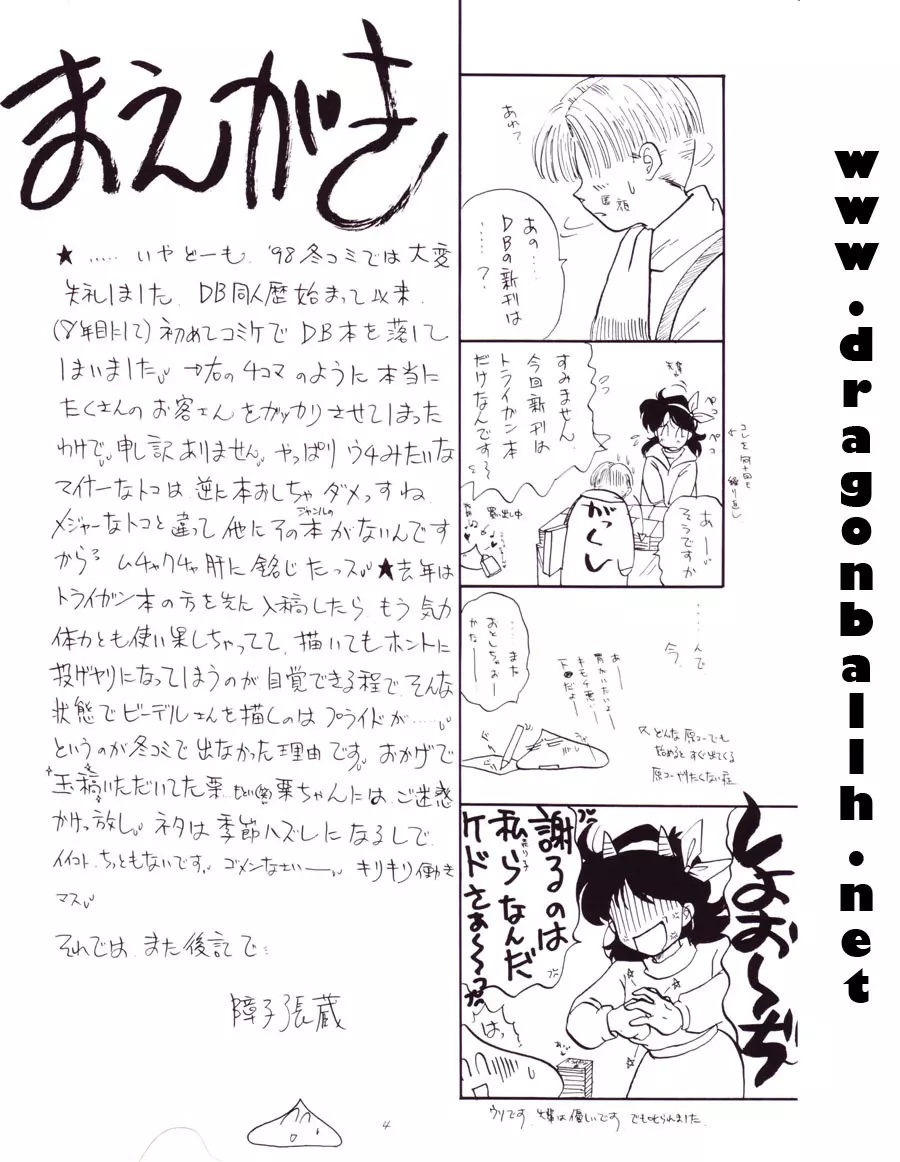 まえがき
★‥‥‥いやどーも、'98冬コミでは大変
失礼しました。DB同人歴始まって以来、
(8年目にして)初めてコミケでDB本を落して
しまいました。→右の4コマのように本当に
たくさんのお客さんをガッカリさせてしまった
わけで、申し訳ありません。やっぱりウチみたいな
マイナーなトコは、逆に本おとしちゃダメっすね。
メジャーなトコと違って他にそのジャンルの本がないんです
から。ムチャクチャ肝に銘じたっス。★去年は
トライガン本の方を先に入稿したら、もう気力
体力とも使い果しちゃってて、描いてもホントに
投げヤリになってしまうのが自覚できる程で、そんな
状態でビーデルさんを描くのはプライドが‥‥‥。
というのが冬コミで出なかった理由です。おかげで
玉稿いただいてた栗 栗ちゃんには、ご迷惑
かけっ放し。ネタは季節ハズレになるしで、
イイコト、ちっともないです。ゴメンなさいー。キリキリ働き
マス。
それでは、また後記で
障子張蔵
4
あれ?
馬顔
あの‥‥
DBの新刊は
‥‥‥?
すみません
今回新刊は
トライガン本
だけなんです〜
先輩
ペコ
ペコ
コレを何十回も
繰り返し
あー
そうですか
がっくし
‥‥‥んで
今、
‥‥‥また
おとしちゃお
かなー
あー
胃がいたいよー
キモチ悪いー
下だよー
どんな原コーでも
始めるとすぐ出てくる
原コーやりたくない症
しょお〜ぢ
謝るのは
私らなんだ
ケドさぁ〜〜っ
はっ
ウソです。先輩は優しいです。でも叱られました。
www.dragonballh.net